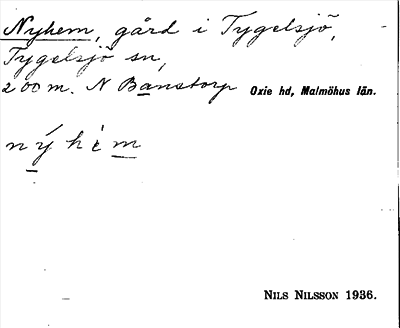 Nyhem, gård i Tygelsjö,
Tygelsjö sn,
200 m. N Banstorp Oxie hd, Malmöhus län.
nýhèm
NILS NILSSON 1936.